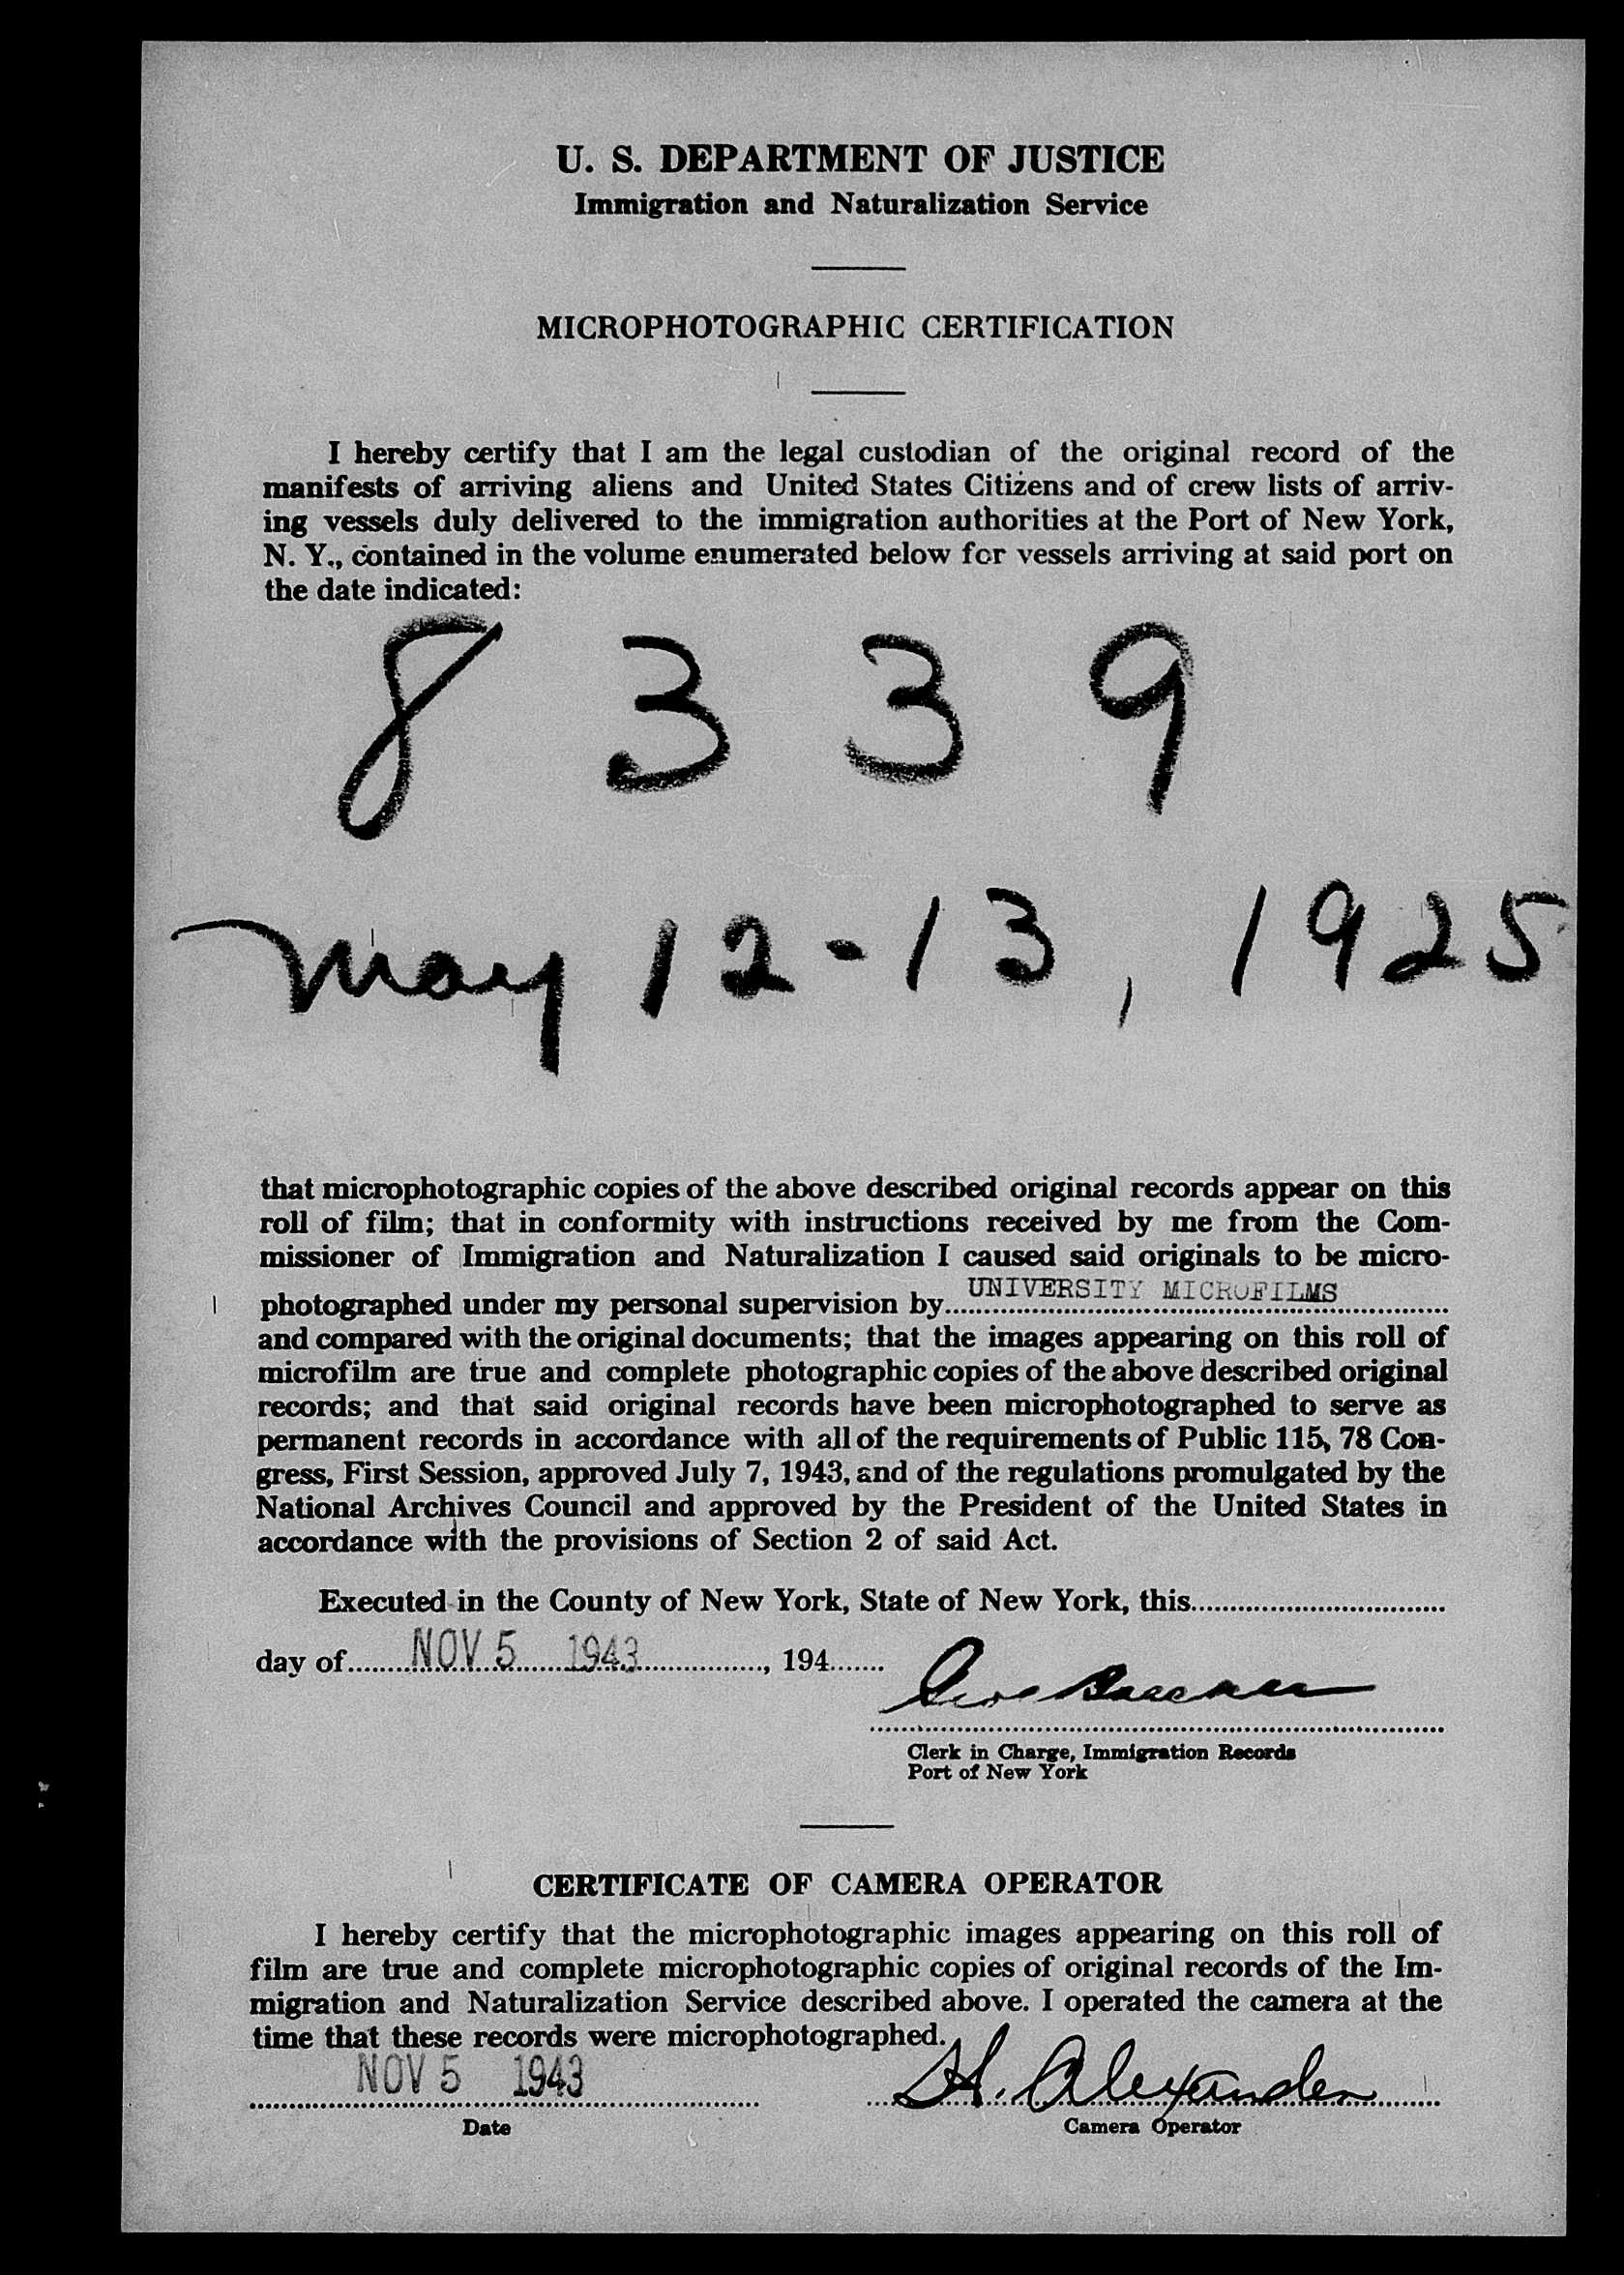 U. S. DEPARTMENT OF JUSTICE
Immigration and Naturalization Service
MICROPHOTOGRAPHIC CERTIFICATION
I hereby certify that I am the legal custodian of the original record of the
manifests of arriving aliens and United States Citizens and of crew lists of arriv-
ing vessels duly delivered to the immigration authorities at the Port of New York,
N. Y., contained in the volume enumerated below for vessels arriving at said port on
the date indicated:
8 3 3 9
May 12-13, 1925
that microphotographic copies of the above described original records appear on this
roll of film; that in conformity with instructions received by me from the Com-
missioner of Immigration and Naturalization I caused said originals to be micro-
photographed under my personal supervision by UNIVERSITY MICROFILMS
and compared with the original documents; that the images appearing on this roll of
microfilm are true and complete photographic copies of the above described original
records; and that said original records have been microphotographed to serve as
permanent records in accordance with all of the requirements of Public 115, 78 Con-
gress, First Session, approved July 7, 1943, and of the regulations promulgated by the
National Archives Council and approved by the President of the United States in
accordance with the provisions of Section 2 of said Act.
Executed in the County of New York, State of New York, this
day of NOV 5 1943, 194
Clerk in Charge, Immigration Records
Port of New York
CERTIFICATE OF CAMERA OPERATOR
I hereby certify that the microphotographic images appearing on this roll of
film are true and complete microphotographic copies of original records of the Im-
migration and Naturalization Service described above. I operated the camera at the
time that these records were microphotographed.
NOV 5 1943 H. Alexander
Date Camera Operator